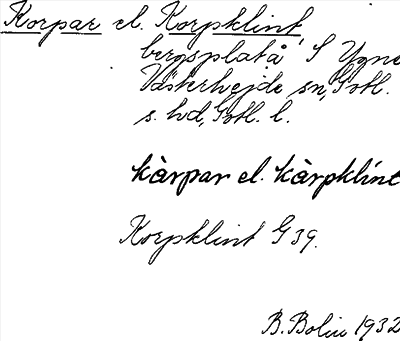 Korpar el. Korpklint,
bergsplatå S Ygne
Västerhejde sn, Gotl.
s. hd, Gotl. l.
kàrpar el. kàrpklint
Korpklint G 39.
B. Bolin 1932